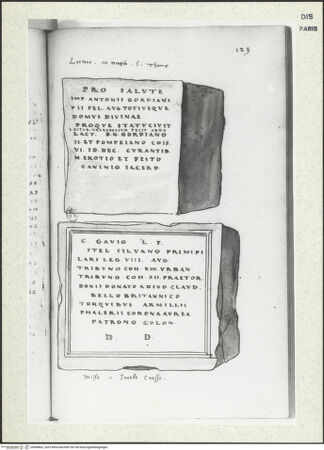 DIS
PARIS
129
S. Thome
PRO SALVTE
IMP. ANTONII GORDIANI
PII FEL. AVG TOTIVSQVE
DOMVS DIVINAE
PROQVE STATV CIVIT
LACT. D.N. GORDIANO
II. ET POMPEIANO COSS.
VI. ID. DEC. CVRANTIB
M. EROTIO ET FESTO
CANINIO SACERD
C. GAVIO L. F.
STEL SILVANO PRIMIPI
LARI LEG. VIII. AVG.
TRIBVNO COH. XIII. VRBAN.
TRIBVNO COH. XII. PRAETOR
DONIS DONATO A DIVO CLAVD.
BELLO BRITANNICO
TORQVIBVS ARMILLIS
PHALERIS CORONA AVREA
PATRONO COLON.
D. D.